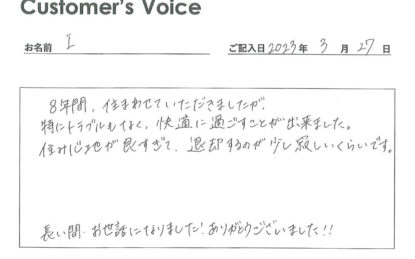 Customer's Voice
お名前 I ご記入日 2023年 3月 27日
8年間、住まわせていただきましたが、
特にトラブルもなく、快適に過ごすことが出来ました。
住み心地が良すぎて、退却するのが少し寂しいくらいです。
長い間、お世話になりました!ありがとうございました!!